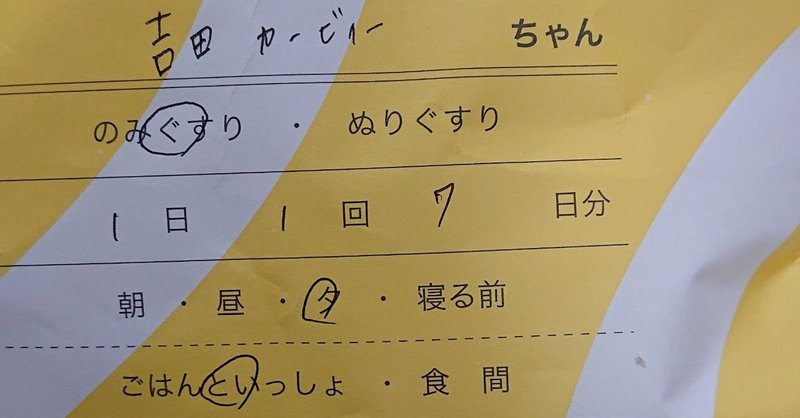 吉田 カービィー ちゃん
のみぐすり ・ ぬりぐすり
1日 1回 7日分
朝 ・ 昼 ・ 夕 ・ 寝る前
ごはんといっしょ ・ 食間